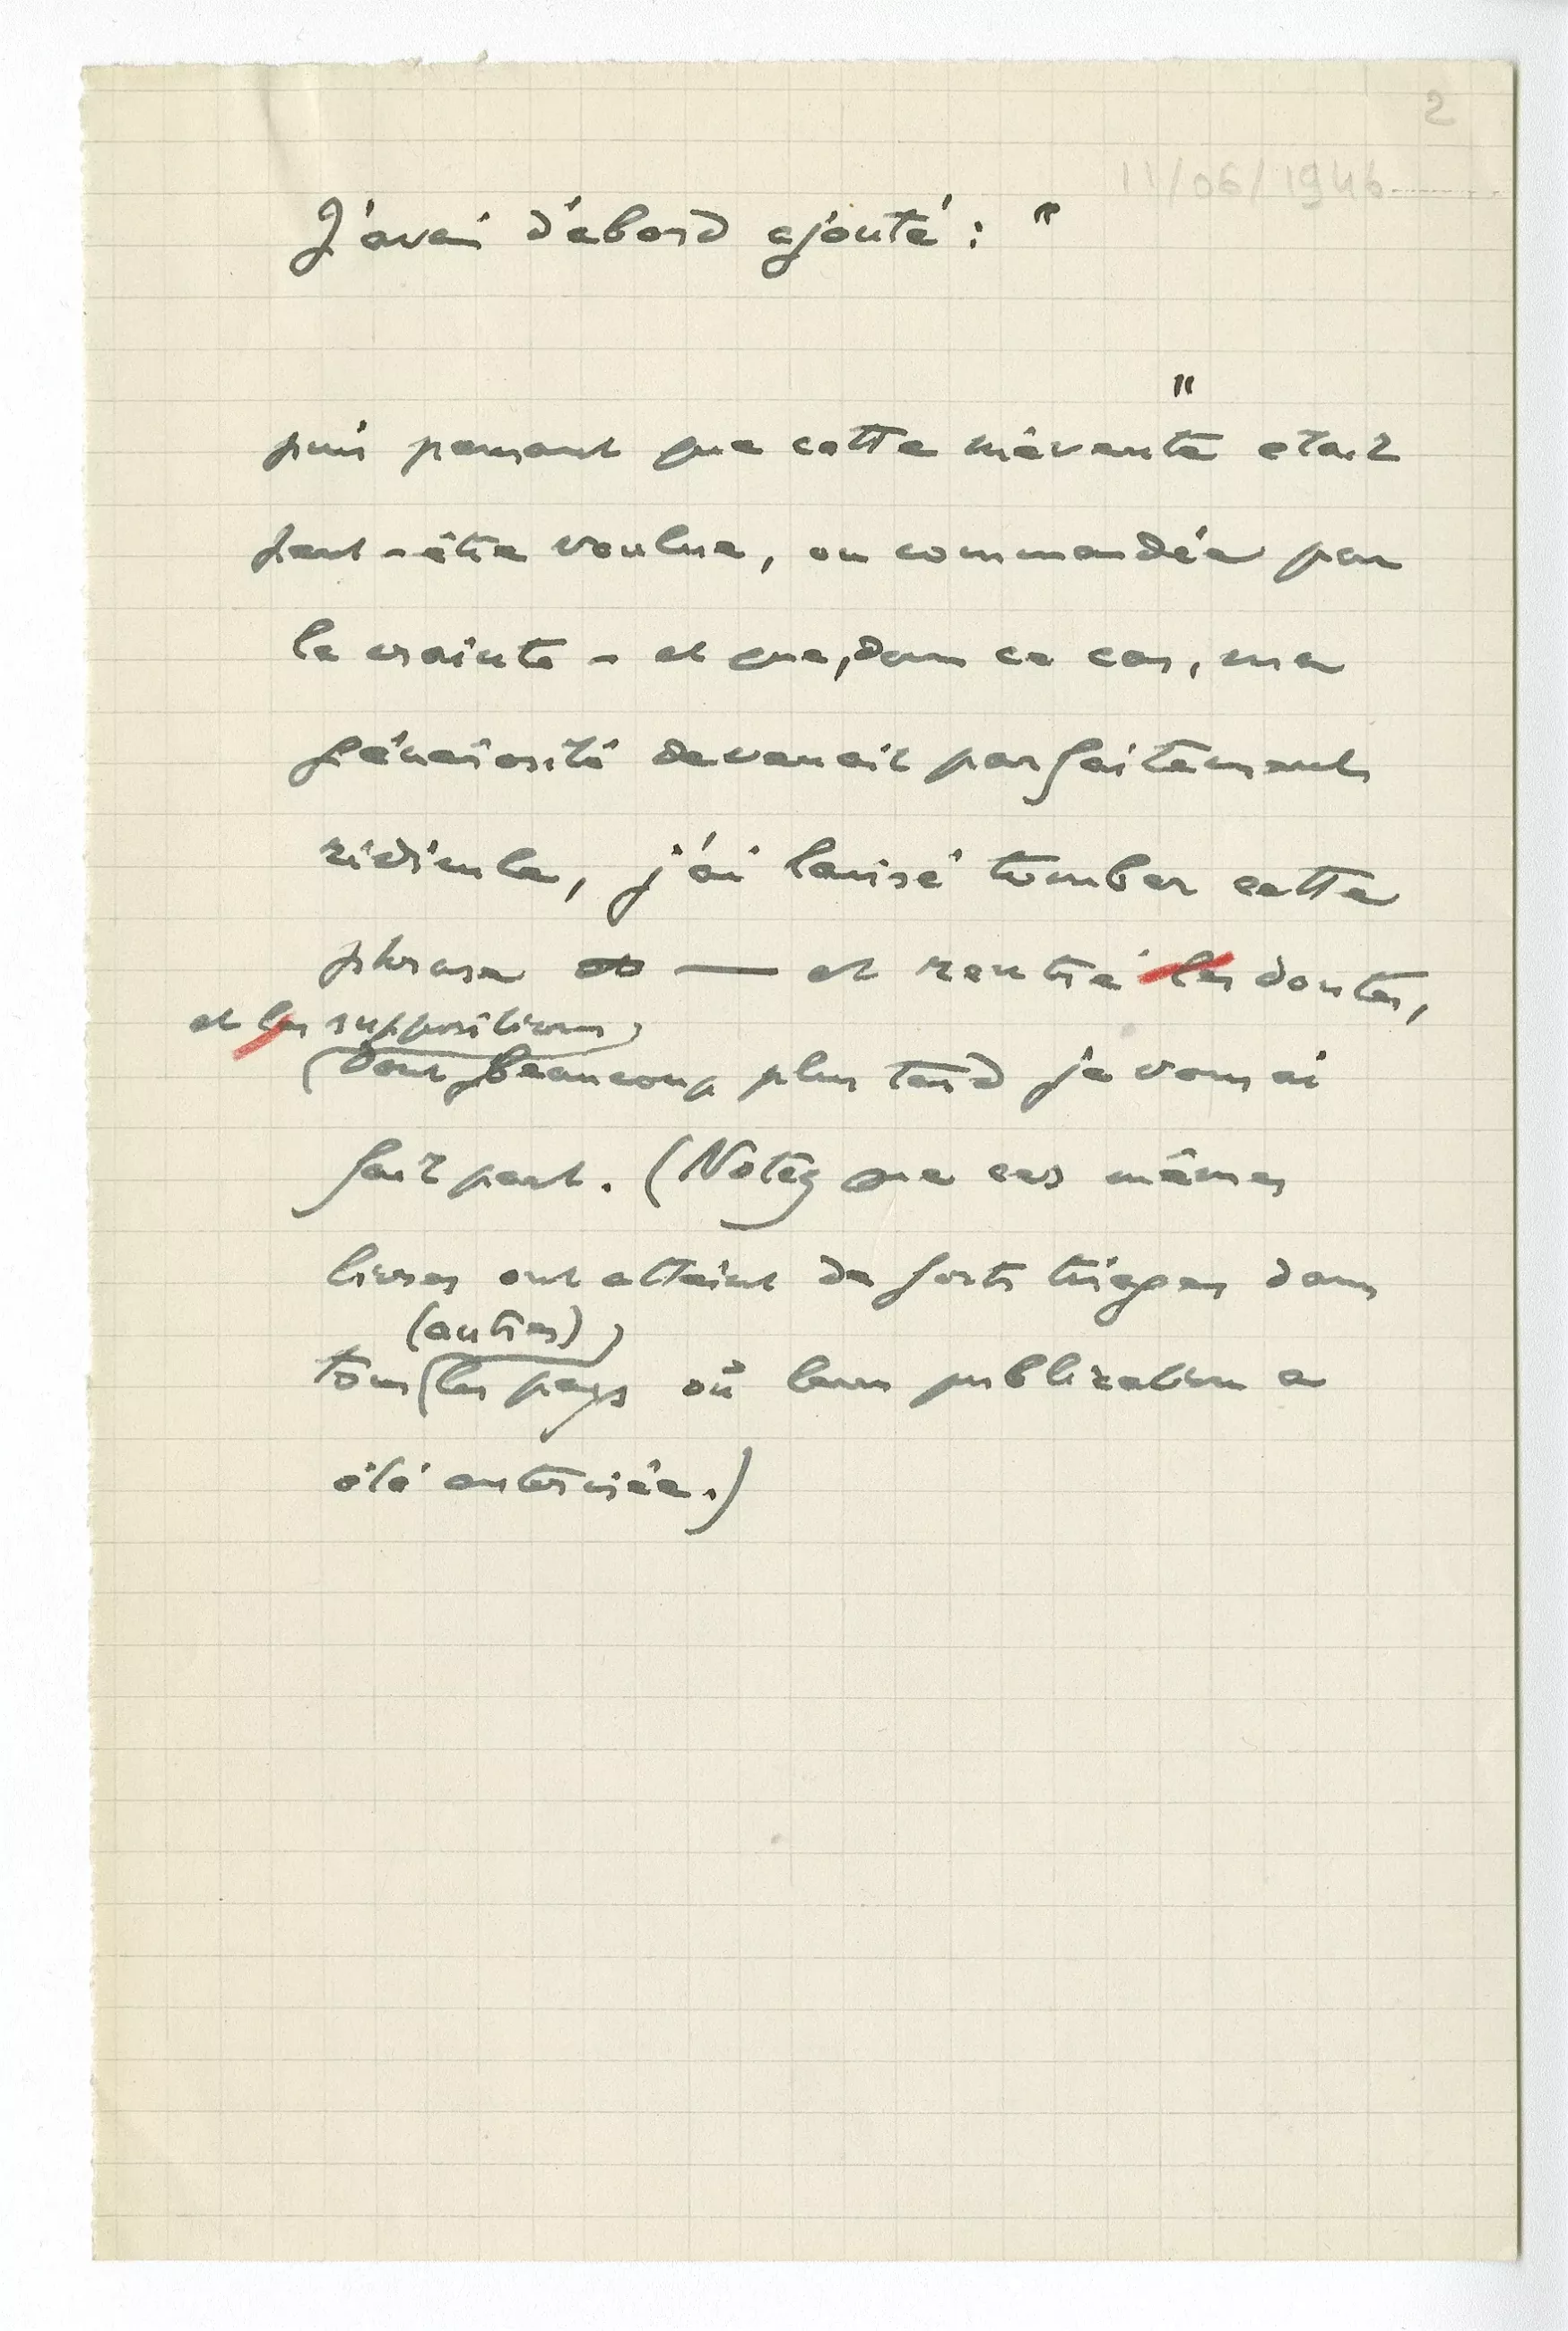 2
11/06/1946
J'avais d'abord ajouté : "
"
puis pensant que cette mévente était
peut-être voulue, ou commandée par
la crainte - et que, dans ce cas, ma
générosité devenait parfaitement
ridicule, j'ai laissé tomber cette
phrase et — et rentré les doutes,
et les suppositions
dont beaucoup plus tard je vous ai
fait part. (Notez que ces mêmes
livres ont atteint de forts tirages dans
(autres)
tous les pays où leur publication a
été autorisée.)